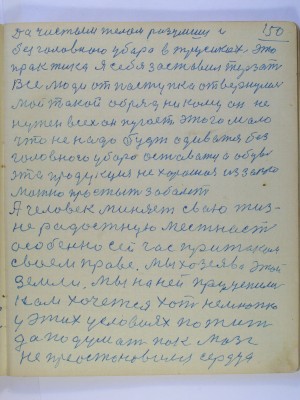 150
Да чистым телом разумиш и
безголовного убора в трусиках это
практика я себя заставил терзат
Все люди от поступка отвернулис
мой такой обряд никому он не
нужен всех он пугает этого мало
что не надо будт одиватя без
головного убора оставатя а обув
эта продукция не хорошая из за ние
можно простыт заболет
А человек миняет сваю жиз-
не радостную местност
особенно сей час при таком
своем праве. мы хозяева этой
земли. мы на ней приучени
Нам хочется хот немножко
у этих условиях пожит
да подумат пок мозг
не преостоновился сердца